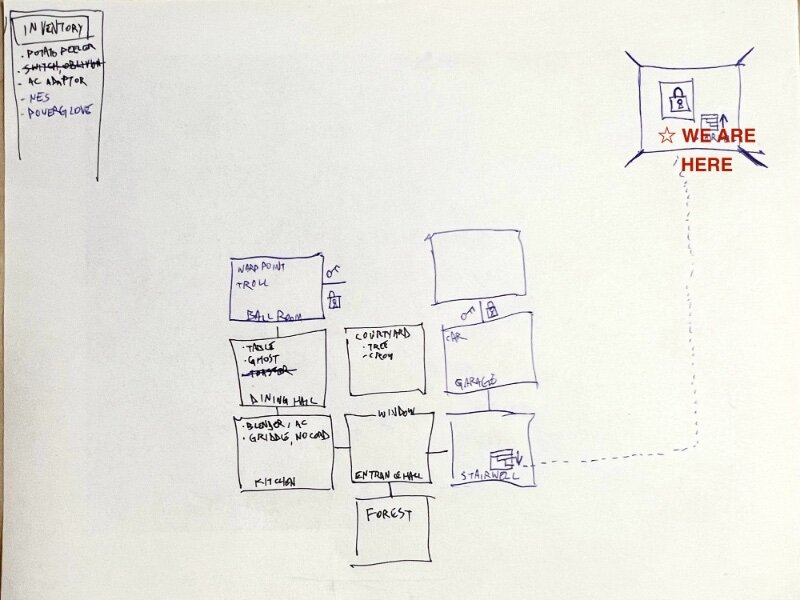 INVENTORY
- POTATO PEELER
- SWITCH, OBLIVION
- AC ADAPTOR
- NES
- POWERGLOVE
☆ WE ARE
HERE
WARDPOINT
TROLL
BALLROOM
- TABLE
- GHOST
- TOASTER
DINING HALL
COURTYARD
- TREE
- CROW
CAR
GARAGE
- BLENDER, AC
- GRIDDLE, NO CORD
KITCHEN
WINDOW
ENTRANCE HALL
STAIRWELL
FOREST